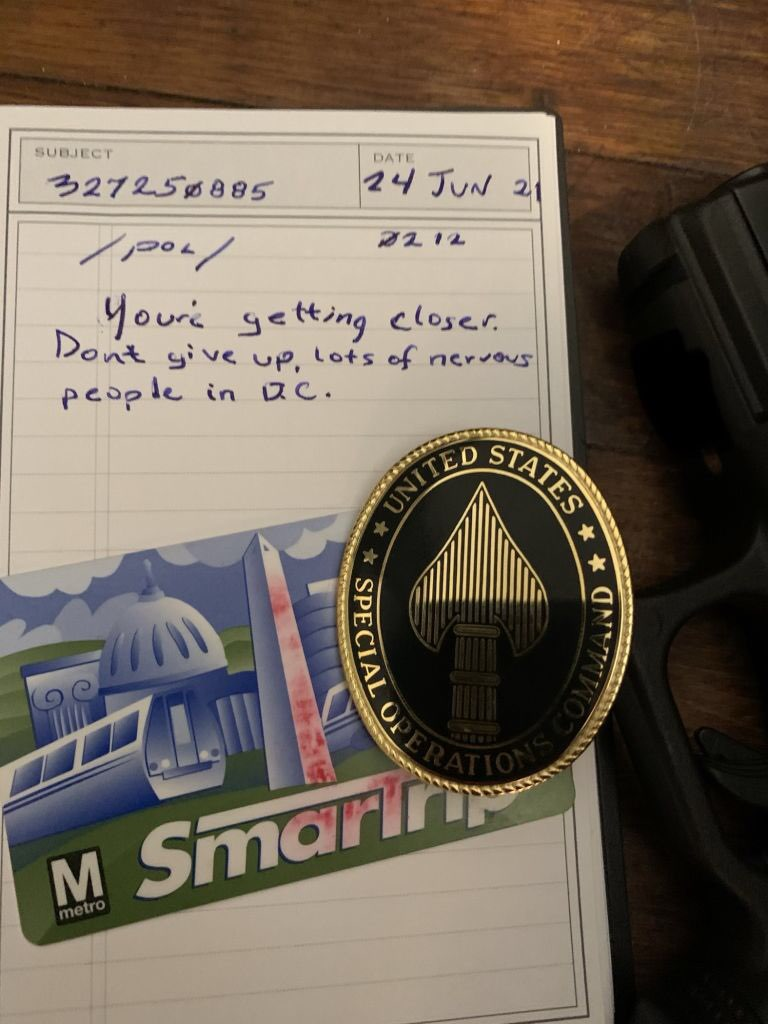 SUBJECT
327250885
DATE
24 JUN 21
/pol/
0212
You're getting closer.
Don't give up, lots of nervous
people in D.C.
UNITED STATES
SPECIAL OPERATIONS COMMAND
SmarTrip
M
metro